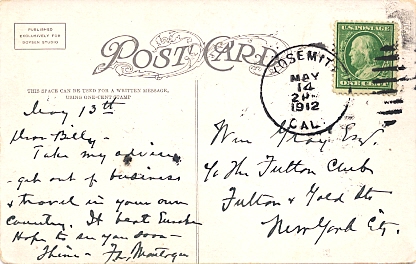 PUBLISHED
EXCLUSIVELY FOR
STUDIO
POST CARD
THIS SPACE CAN BE USED FOR A WRITTEN MESSAGE,
USING ONE-CENT STAMP
YOSEMITE
MAY
14
2 PM
1912
CAL.
U.S. POSTAGE
ONE CENT
May 13th
Dear Billy -
Take my advice
- get out of business
& travel in your own
country. It beat Europe
Hope to see you soon -
Thine -
Wm Gray Esq.
c/o The Fulton Club
Fulton & Gold Sts
New York City.